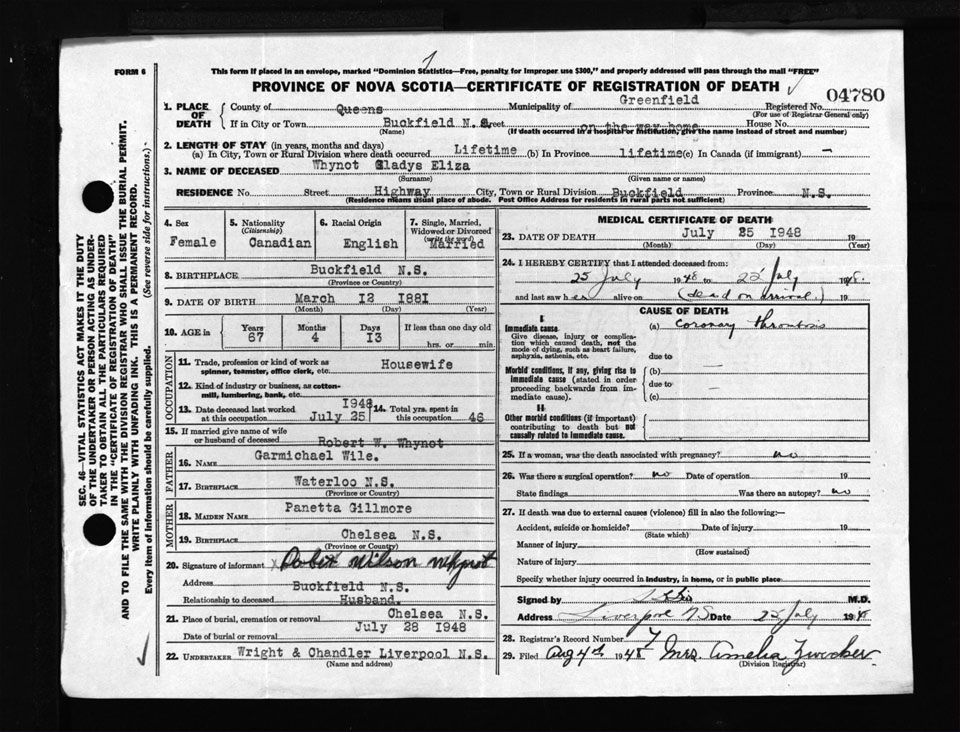 1
FORM 6
This form if placed in an envelope, marked "Dominion Statistics—Free, penalty for improper use $300," and properly addressed will pass through the mail "FREE"
PROVINCE OF NOVA SCOTIA—CERTIFICATE OF REGISTRATION OF DEATH
04780
1. PLACE OF DEATH
County of Queens Municipality of Greenfield Registered No.
(For use of Registrar General only)
If in City or Town Buckfield N.S. Street on the way home House No.
(Name) (If death occurred in a hospital or institution, give the name instead of street and number)
2. LENGTH OF STAY (in years, months and days)
(a) In City, Town or Rural Division where death occurred Lifetime (b) In Province lifetime (c) In Canada (if immigrant) —
3. NAME OF DECEASED Whynot Gladys Eliza
(Surname) (Given name or names)
RESIDENCE No. Street Highway City, Town or Rural Division Buckfield Province N.S.
(Residence means usual place of abode. Post Office Address for residents in rural parts not sufficient)
4. Sex
Female
5. Nationality
(Citizenship)
Canadian
6. Racial Origin
English
7. Single, Married, Widowed or Divorced
(write the word)
Married
8. BIRTHPLACE Buckfield N.S.
(Province or Country)
9. DATE OF BIRTH March 12 1881
(Month) (Day) (Year)
10. AGE in
Years
67
Months
4
Days
13
If less than one day old
hrs. or min.
OCCUPATION
11. Trade, profession or kind of work as spinner, teamster, office clerk, etc. Housewife
12. Kind of industry or business, as cotton-mill, lumbering, bank, etc.
13. Date deceased last worked at this occupation July 25 1948
14. Total yrs. spent in this occupation 46
15. If married give name of wife or husband of deceased Robert W. Whynot
FATHER
16. NAME Garmichael Wile.
17. BIRTHPLACE Waterloo N.S.
(Province or Country)
MOTHER
18. MAIDEN NAME Panetta Gillmore
19. BIRTHPLACE Chelsea N.S.
(Province or Country)
20. Signature of informant x Wilson Whynot
Address Buckfield N.S.
Relationship to deceased Husband.
21. Place of burial, cremation or removal Chelsea N.S.
Date of burial or removal July 28 1948
22. UNDERTAKER Wright & Chandler Liverpool N.S.
(Name and address)
MEDICAL CERTIFICATE OF DEATH
23. DATE OF DEATH July 25 1948
(Month) (Day) (Year)
24. I HEREBY CERTIFY that I attended deceased from:
25 July 1948 to 25 July 1948.
and last saw her alive on (dead on arrival.) 19
CAUSE OF DEATH
I
Immediate cause
Give disease, injury or complication which caused death, not the mode of dying, such as heart failure, asphyxia, asthenia, etc.
(a) coronary thrombosis
due to
Morbid conditions, if any, giving rise to immediate cause (stated in order proceeding backwards from immediate cause).
(b) —
due to —
(c)
II
Other morbid conditions (if important) contributing to death but not causally related to immediate cause.
25. If a woman, was the death associated with pregnancy? no
26. Was there a surgical operation? no Date of operation 19
State findings Was there an autopsy? no
27. If death was due to external causes (violence) fill in also the following:—
Accident, suicide or homicide? Date of injury 19
(State which)
Manner of injury
(How sustained)
Nature of injury
Specify whether injury occurred in industry, in home, or in public place
Signed by M.D.
Address Liverpool NS Date 25 July 1948
28. Registrar's Record Number 7
29. Filed Aug 4th 1948 Mrs. Amelia Zwicker.
(Division Registrar)
SEC. 46—VITAL STATISTICS ACT MAKES IT THE DUTY
OF THE UNDERTAKER OR PERSON ACTING AS UNDER-
TAKER TO OBTAIN ALL THE PARTICULARS REQUIRED
IN THE "CERTIFICATE OF REGISTRATION OF DEATH"
AND TO FILE THE SAME WITH THE DIVISION REGISTRAR WHO SHALL ISSUE THE BURIAL PERMIT.
WRITE PLAINLY WITH UNFADING INK. THIS IS A PERMANENT RECORD.
Every item of information should be carefully supplied. (See reverse side for instructions.)